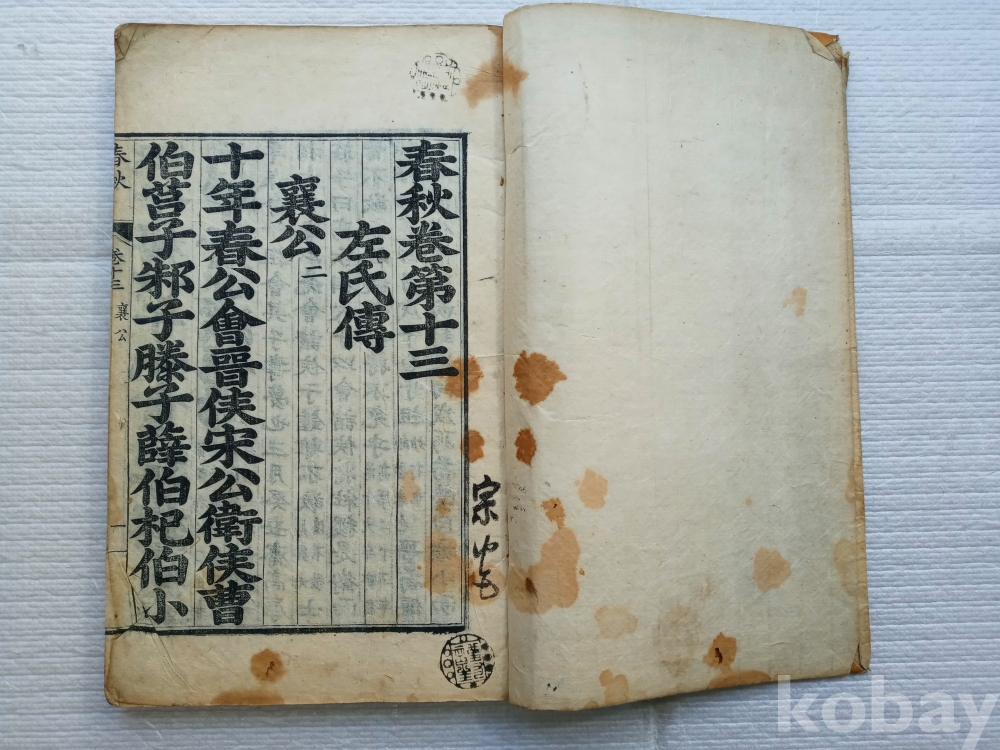 春秋卷第十三
左氏傳
襄公二
十年春公會晉侯宋公衛侯曹
伯莒子邾子滕子薛伯杞伯小
春秋
卷十三
襄公
一
kobay